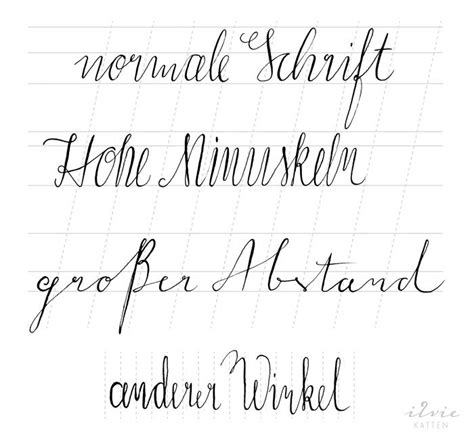 normale Schrift
Hohe Minuskeln
großer Abstand
anderer Winkel
ilvie
KATTEN